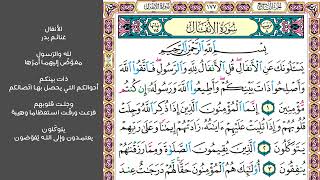 ١٧٧
سُورَةُ الأَنفَالِ
بِسْمِ ٱللَّهِ ٱلرَّحْمَٰنِ ٱلرَّحِيمِ
يَسْـَٔلُونَكَ عَنِ ٱلْأَنفَالِ قُلِ ٱلْأَنفَالُ لِلَّهِ وَٱلرَّسُولِ فَٱتَّقُوا۟ ٱللَّهَ
وَأَصْلِحُوا۟ ذَاتَ بَيْنِكُمْ وَأَطِيعُوا۟ ٱللَّهَ وَرَسُولَهُۥٓ إِن كُنتُم
مُّؤْمِنِينَ ١ إِنَّمَا ٱلْمُؤْمِنُونَ ٱلَّذِينَ إِذَا ذُكِرَ ٱللَّهُ وَجِلَتْ
قُلُوبُهُمْ وَإِذَا تُلِيَتْ عَلَيْهِمْ ءَايَٰتُهُۥ زَادَتْهُمْ إِيمَٰنًا وَعَلَىٰ رَبِّهِمْ
يَتَوَكَّلُونَ ٢ ٱلَّذِينَ يُقِيمُونَ ٱلصَّلَوٰةَ وَمِمَّا رَزَقْنَٰهُمْ
يُنفِقُونَ ٣ أُو۟لَٰٓئِكَ هُمُ ٱلْمُؤْمِنُونَ حَقًّا لَّهُمْ دَرَجَٰتٌ عِندَ
الأنفال
غنائم بدر
لله والرسول
مفوّض إليهما أمرُها
ذات بينكم
أحوالكم التي يحصل بها اتصالكم
وجلت قلوبهم
فزعت ورقت استعظاما وهيبة
يتوكلون
يعتمدون وإلى الله يُفوّضون